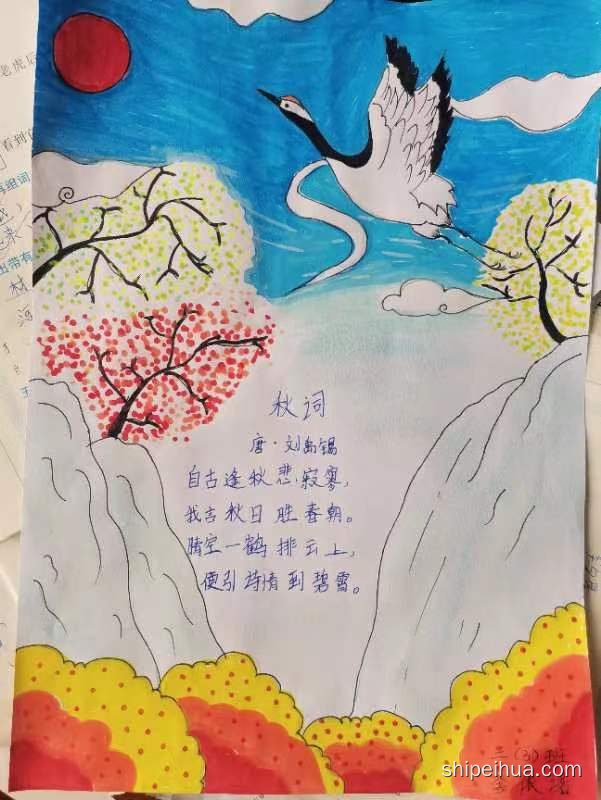 秋词
唐·刘禹锡
自古逢秋悲寂寥,
我言秋日胜春朝。
晴空一鹤排云上,
便引诗情到碧霄。
三(3)班
shipeihua.com
看到
组词
出带有
河